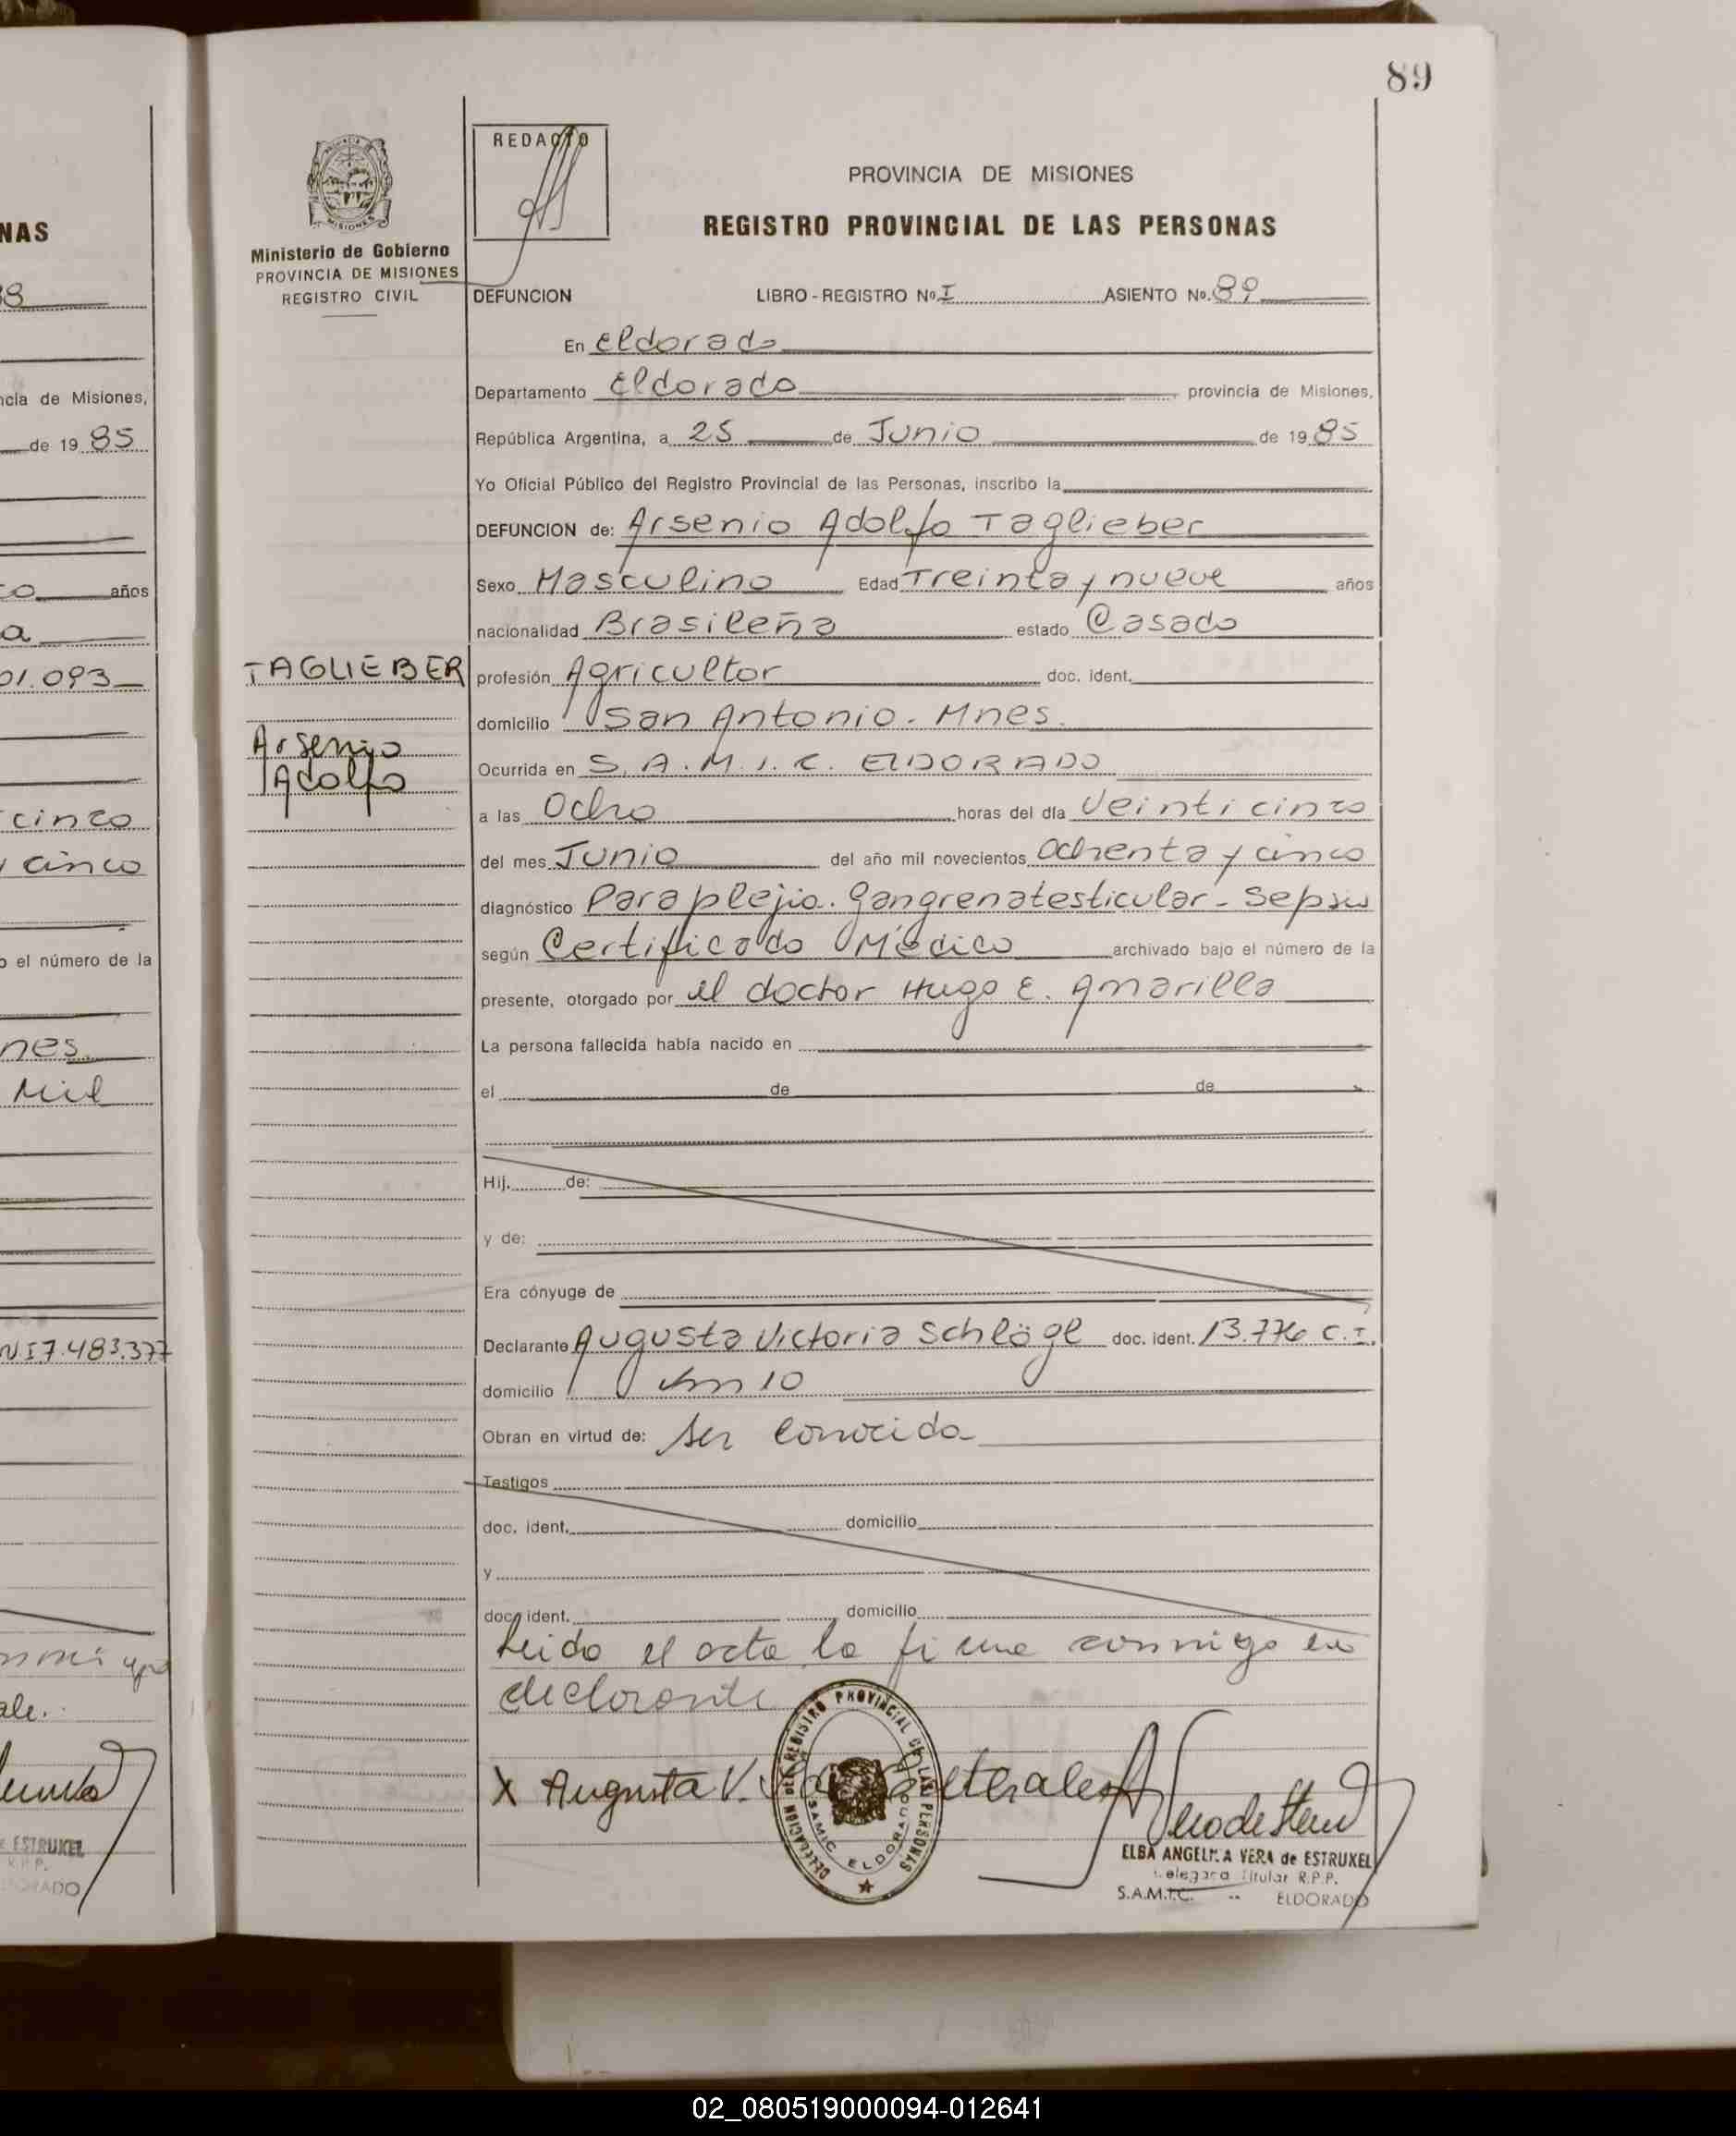 89
NAS
8
ncia de Misiones,
de 19 85
o años
a
01.093
cinco
y cinco
o el número de la
nes
Mil
N.I 7.483.377
ale.
ESTRUXEL
PROVINCIA DE MISIONES
Ministerio de Gobierno
PROVINCIA DE MISIONES
REGISTRO CIVIL
REDACTO
PROVINCIA DE MISIONES
REGISTRO PROVINCIAL DE LAS PERSONAS
DEFUNCION LIBRO - REGISTRO Nº I ASIENTO Nº. 89
En Eldorado
Departamento Eldorado provincia de Misiones,
República Argentina, a 25 de Junio de 19 85
Yo Oficial Público del Registro Provincial de las Personas, inscribo la
DEFUNCION de: Arsenio Adolfo Taglieber
Sexo Masculino Edad Treinta y nueve años
nacionalidad Brasileña estado Casado
TAGLIEBER
Arsenio
Adolfo
profesión Agricultor doc. ident.
domicilio San Antonio - Mnes.
Ocurrida en S.A.M.I.C. ELDORADO
a las Ocho horas del día Veinticinco
del mes Junio del año mil novecientos Ochenta y cinco
diagnóstico Paraplejia. Gangrena testicular - Sepsis
según Certificado Médico archivado bajo el número de la
presente, otorgado por el doctor Hugo E. Amarilla
La persona fallecida había nacido en
el de de
Hij. de:
y de:
Era cónyuge de
Declarante Augusta Victoria Schlögl doc. ident. 13.776 C.I.
domicilio Km 10
Obran en virtud de: ser conocida
Testigos
doc. ident. domicilio
y
doc. ident. domicilio
Leido el acta la firma conmigo la
declarante
X Augusta V.
DELEGACION DEL REGISTRO PROVINCIAL DE LAS PERSONAS
SAMIC ELDORADO
ELBA ANGELICA VERA de ESTRUXEL
Delegada Titular R.P.P.
S.A.M.I.C. -- ELDORADO
02_080519000094-012641